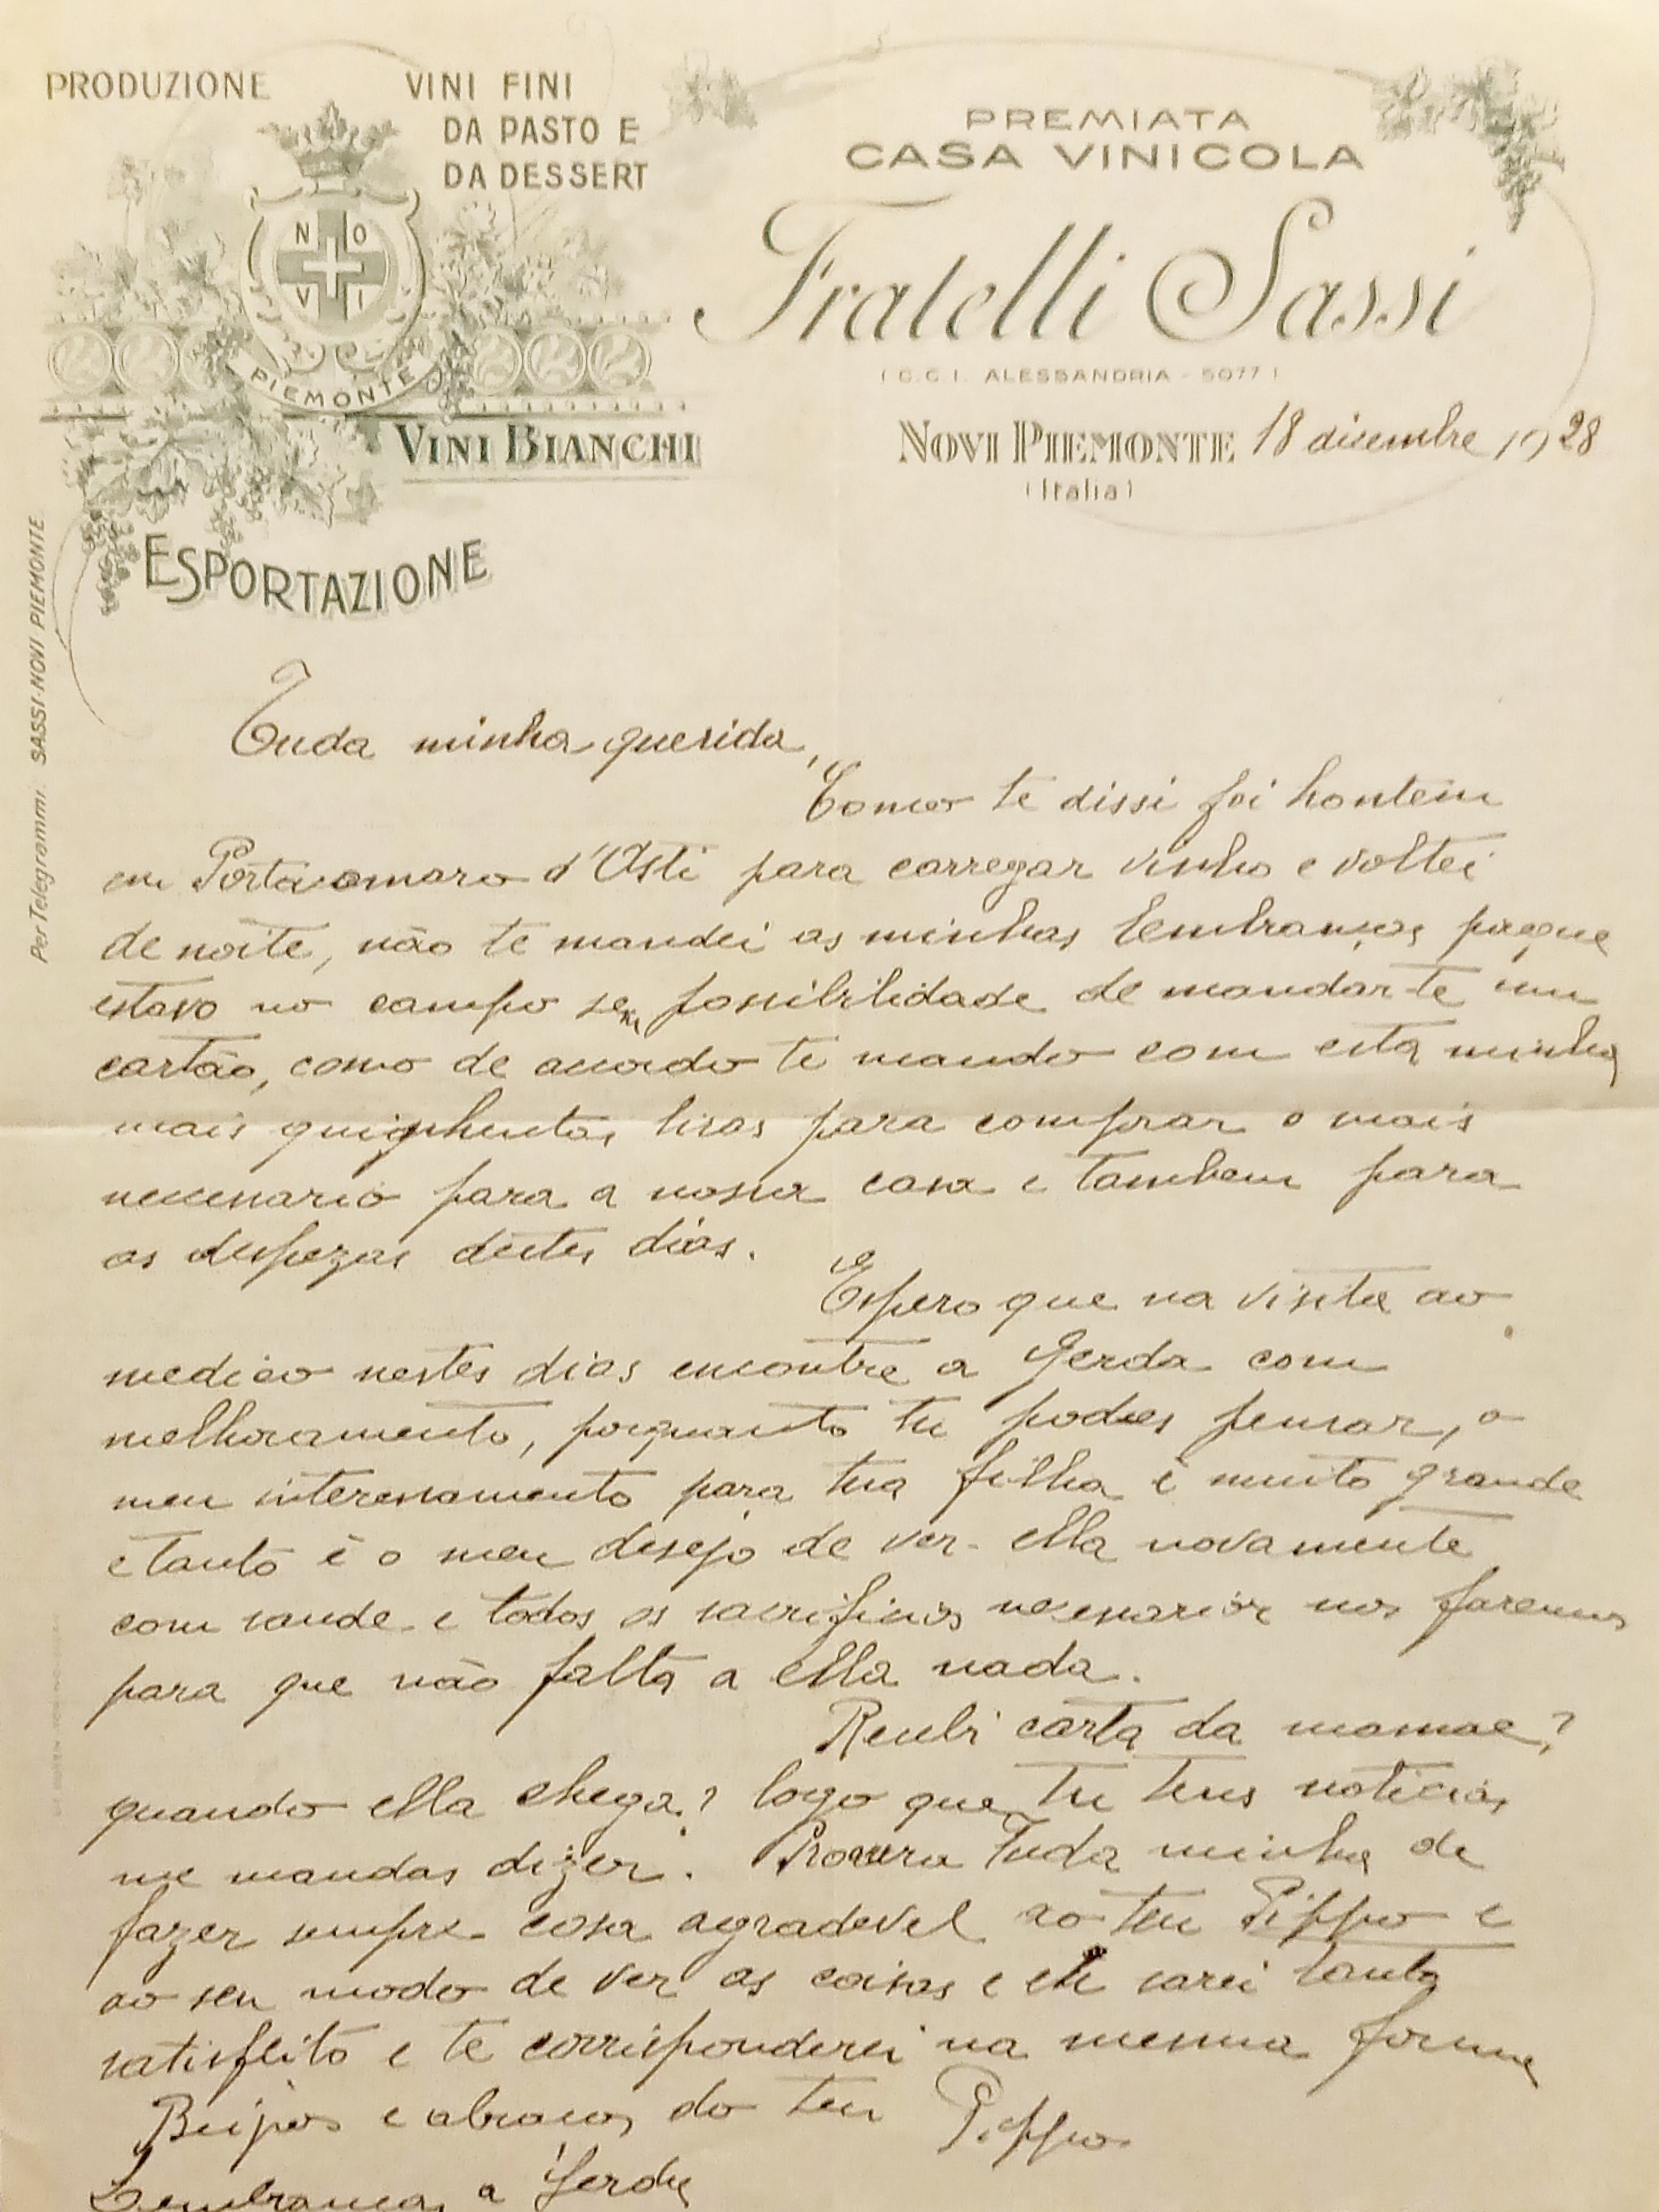 PRODUZIONE VINI FINI
DA PASTO E
DA DESSERT
NOVI
PIEMONTE
VINI BIANCHI
ESPORTAZIONE
Per Telegrammi: SASSI-NOVI PIEMONTE
PREMIATA
CASA VINICOLA
Fratelli Sassi
(C.C.I. ALESSANDRIA - 5077)
NOVI PIEMONTE 18 dicembre 1928
(Italia)
Tuda minha querida,
Como te dissi foi hontem
em Portacomaro d'Asti para carregar vinho e voltei
de noite, não te mandei as minhas lembranças porque
estavo no campo sem possibilidade de mandar-te um
cartão, como de acordo te mando com esta minha
mais quinhentas liras para comprar o mais
necessario para a nossa casa e tambem para
as despezas destes dias.
Espero que na visita ao
medico nestes dias encontre a Gerda com
melhoramento, porquanto tu podes pensar, o
meu interessamento para tua filha è muito grande
e tanto è o meu desejo de ver ella novamente
com saude e todos os sacrificios necessarios nos faremos
para que não falta a ella nada.
Recebi carta da mamae?
quando ella chega? logo que tu teus noticias
me mandas dizer. Procura Tuda minha de
fazer sempre cosa agradevel ao teu Pippo e
ao seu modo de ver as coisas e eu sarei tanto
satisfeito e te corrisponderei na mesma forma
Beijos e abracos do teu Pippo
Lembrancas a Gerda